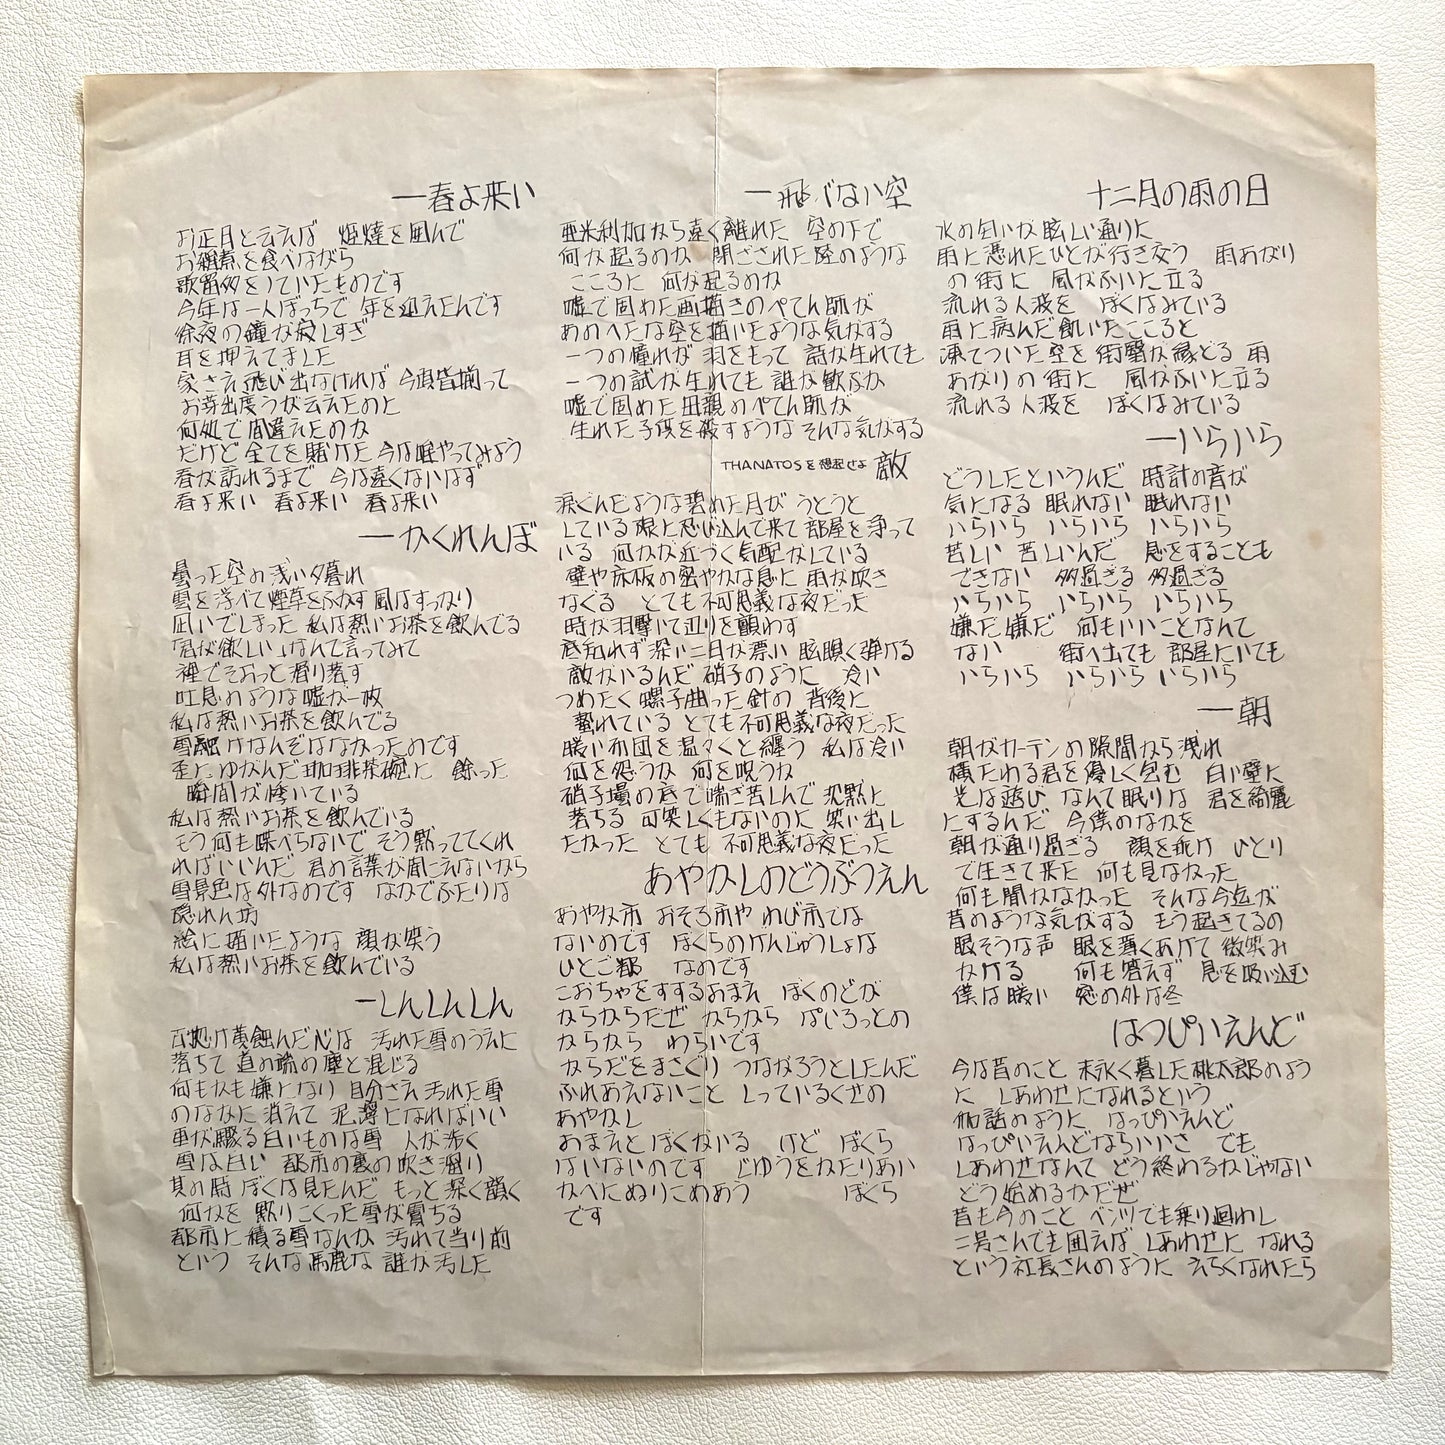 一春よ来い
お正月と云えば 炬燵を囲んで
お雑煮を食べながら
歌留多をしていたものです
今年は一人ぼっちで 年を迎えたんです
除夜の鐘が寂しすぎ
耳を押えてました
家さえ飛び出なければ 今頃皆揃って
お芽出度うが云えたのに
何処で間違えたのか
だけど全てを賭けた 今は唯やってみよう
春が訪れるまで 今は遠くないはず
春よ来い 春よ来い 春よ来い
一かくれんぼ
曇った空の浅い夕暮れ
雲を浮べて煙草をふかす 風はすっかり
凪いでしまった 私は熱いお茶を飲んでる
「君が欲しい」なんて言ってみて
裡でそおっと滑り落す
吐息のような嘘が一枚
私は熱いお茶を飲んでる
雪融けなんぞはなかったのです
歪にゆがんだ珈琲茶碗に 餘った
瞬間が悸いている
私は熱いお茶を飲んでいる
もう何も喋べらないで そう黙っててくれ
ればいいんだ 君の言葉が聞こえないから
雪景色は外なのです なかでふたりは
隠れん坊
絵に描いたような 顔が笑う
私は熱いお茶を飲んでいる
一しんしんしん
古惚け黄蝕んだ心は 汚れた雪のうえに
落ちて 道の端の塵と混じる
何もかも嫌になり 自分さえ汚れた雪
のなかに消えて 泥濘になればいい
車が轢る白いものは雪 人が歩く
雪は白い 都市の裏の吹き溜り
其の時 ぼくは見たんだ もっと深く韻く
何かを 黙りこくった雪が霣ちる
都市に積る雪なんか 汚れて当り前
という そんな馬鹿な 誰が汚した
一飛べない空
亜米利加から遠く離れた 空の下で
何が起るのか 閉ざされた陸のような
こころに 何が起るのか
嘘で固めた画描きのぺてん師が
あのへたな空を描いたような気がする
一つの憧れが 羽をもって 詩が生れても
一つの試が生れても 誰が歓ぶか
嘘で固めた母親のぺてん師が
生れた子供を殺すような そんな気がする
THANATOSを想起せよ 敵
涙ぐんだような碧めた月が うとうと
している 娘と忍び込んで来て 部屋を浄って
いる 何かが近づく気配がしている
壁や床板の密やかな息に 雨が吹き
なぐる とても不可思議な夜だった
時が羽撃いて辺りを顫わす
底知れず深い二日が漂い 眩瞑く弾ける
敵がいるんだ 硝子のように 冷い
つめたく 螺子曲った針の 背後に
蟄れている とても不可思議な夜だった
暖い布団を温々と纏う 私は冷い
何を怨うか 何を呪うか
硝子場の底で喘ぎ苦しんで 沈黙に
落ちる 可笑しくもないのに 笑い出し
たかった とても 不可思議な夜だった
あやかしのどうぶつえん
あやか市 おそろ市や わび市では
ないのです ぼくらのけんじゅうしょは
ひとご都 なのです
こおちゃをすするおまえ ぼくのどが
からからだぜ からから ぱいろっとの
からから わらいです
からだをまさぐり つながろうとしたんだ
ふれあえないこと しっているくせの
あやかし
おまえと ぼくがいる けど ぼくら
はいないのです じゆうをかたりあい
かべにぬりこめあう ぼくら
です
十二月の雨の日
水の匂いが眩しい通りに
雨に憑れたひとが行き交う 雨あがり
の街に 風がふいに立る
流れる人波を ぼくはみている
雨に病んだ飢いたこころと
凍てついた空を 街翳が縁どる 雨
あがりの街に 風がふいに立る
流れる人波を ぼくはみている
一いらいら
どうしたというんだ 時計の音が
気になる 眠れない 眠れない
いらいら いらいら いらいら
苦しい 苦しいんだ 息をすることも
できない 多過ぎる 多過ぎる
いらいら いらいら いらいら
嫌だ嫌だ 何もいいことなんて
ない 街へ出ても 部屋にいても
いらいら いらいら いらいら
一朝
朝がカーテンの隙間から洩れ
横たわる君を優しく包む 白い壁に
光は遊び なんて眠りは 君を綺麗
にするんだ 今僕のなかを
朝が通り過ぎる 顔を乖け ひとり
で生きて来た 何も見なかった
何も聞かなかった そんな今迄が
昔のような気がする もう起きてるの
眠そうな声 眼を薄くあけて 微笑み
かける 何も答えず 息を吸い込む
僕は暖い 窓の外は冬
はっぴいえんど
今は昔のこと 末永く暮した桃太郎のよう
に しあわせになれるという
お話のように はっぴいえんど
はっぴいえんどならいいさ でも
しあわせなんて どう終わるかじゃない
どう始めるかだぜ
昔も今のこと ベンツでも乗り廻わし
二号さんでも囲えば しあわせに なれる
という社長さんのように えらくなれたら